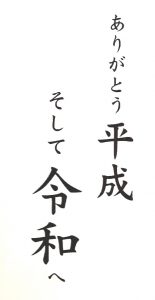 ありがとう平成
そして令和へ